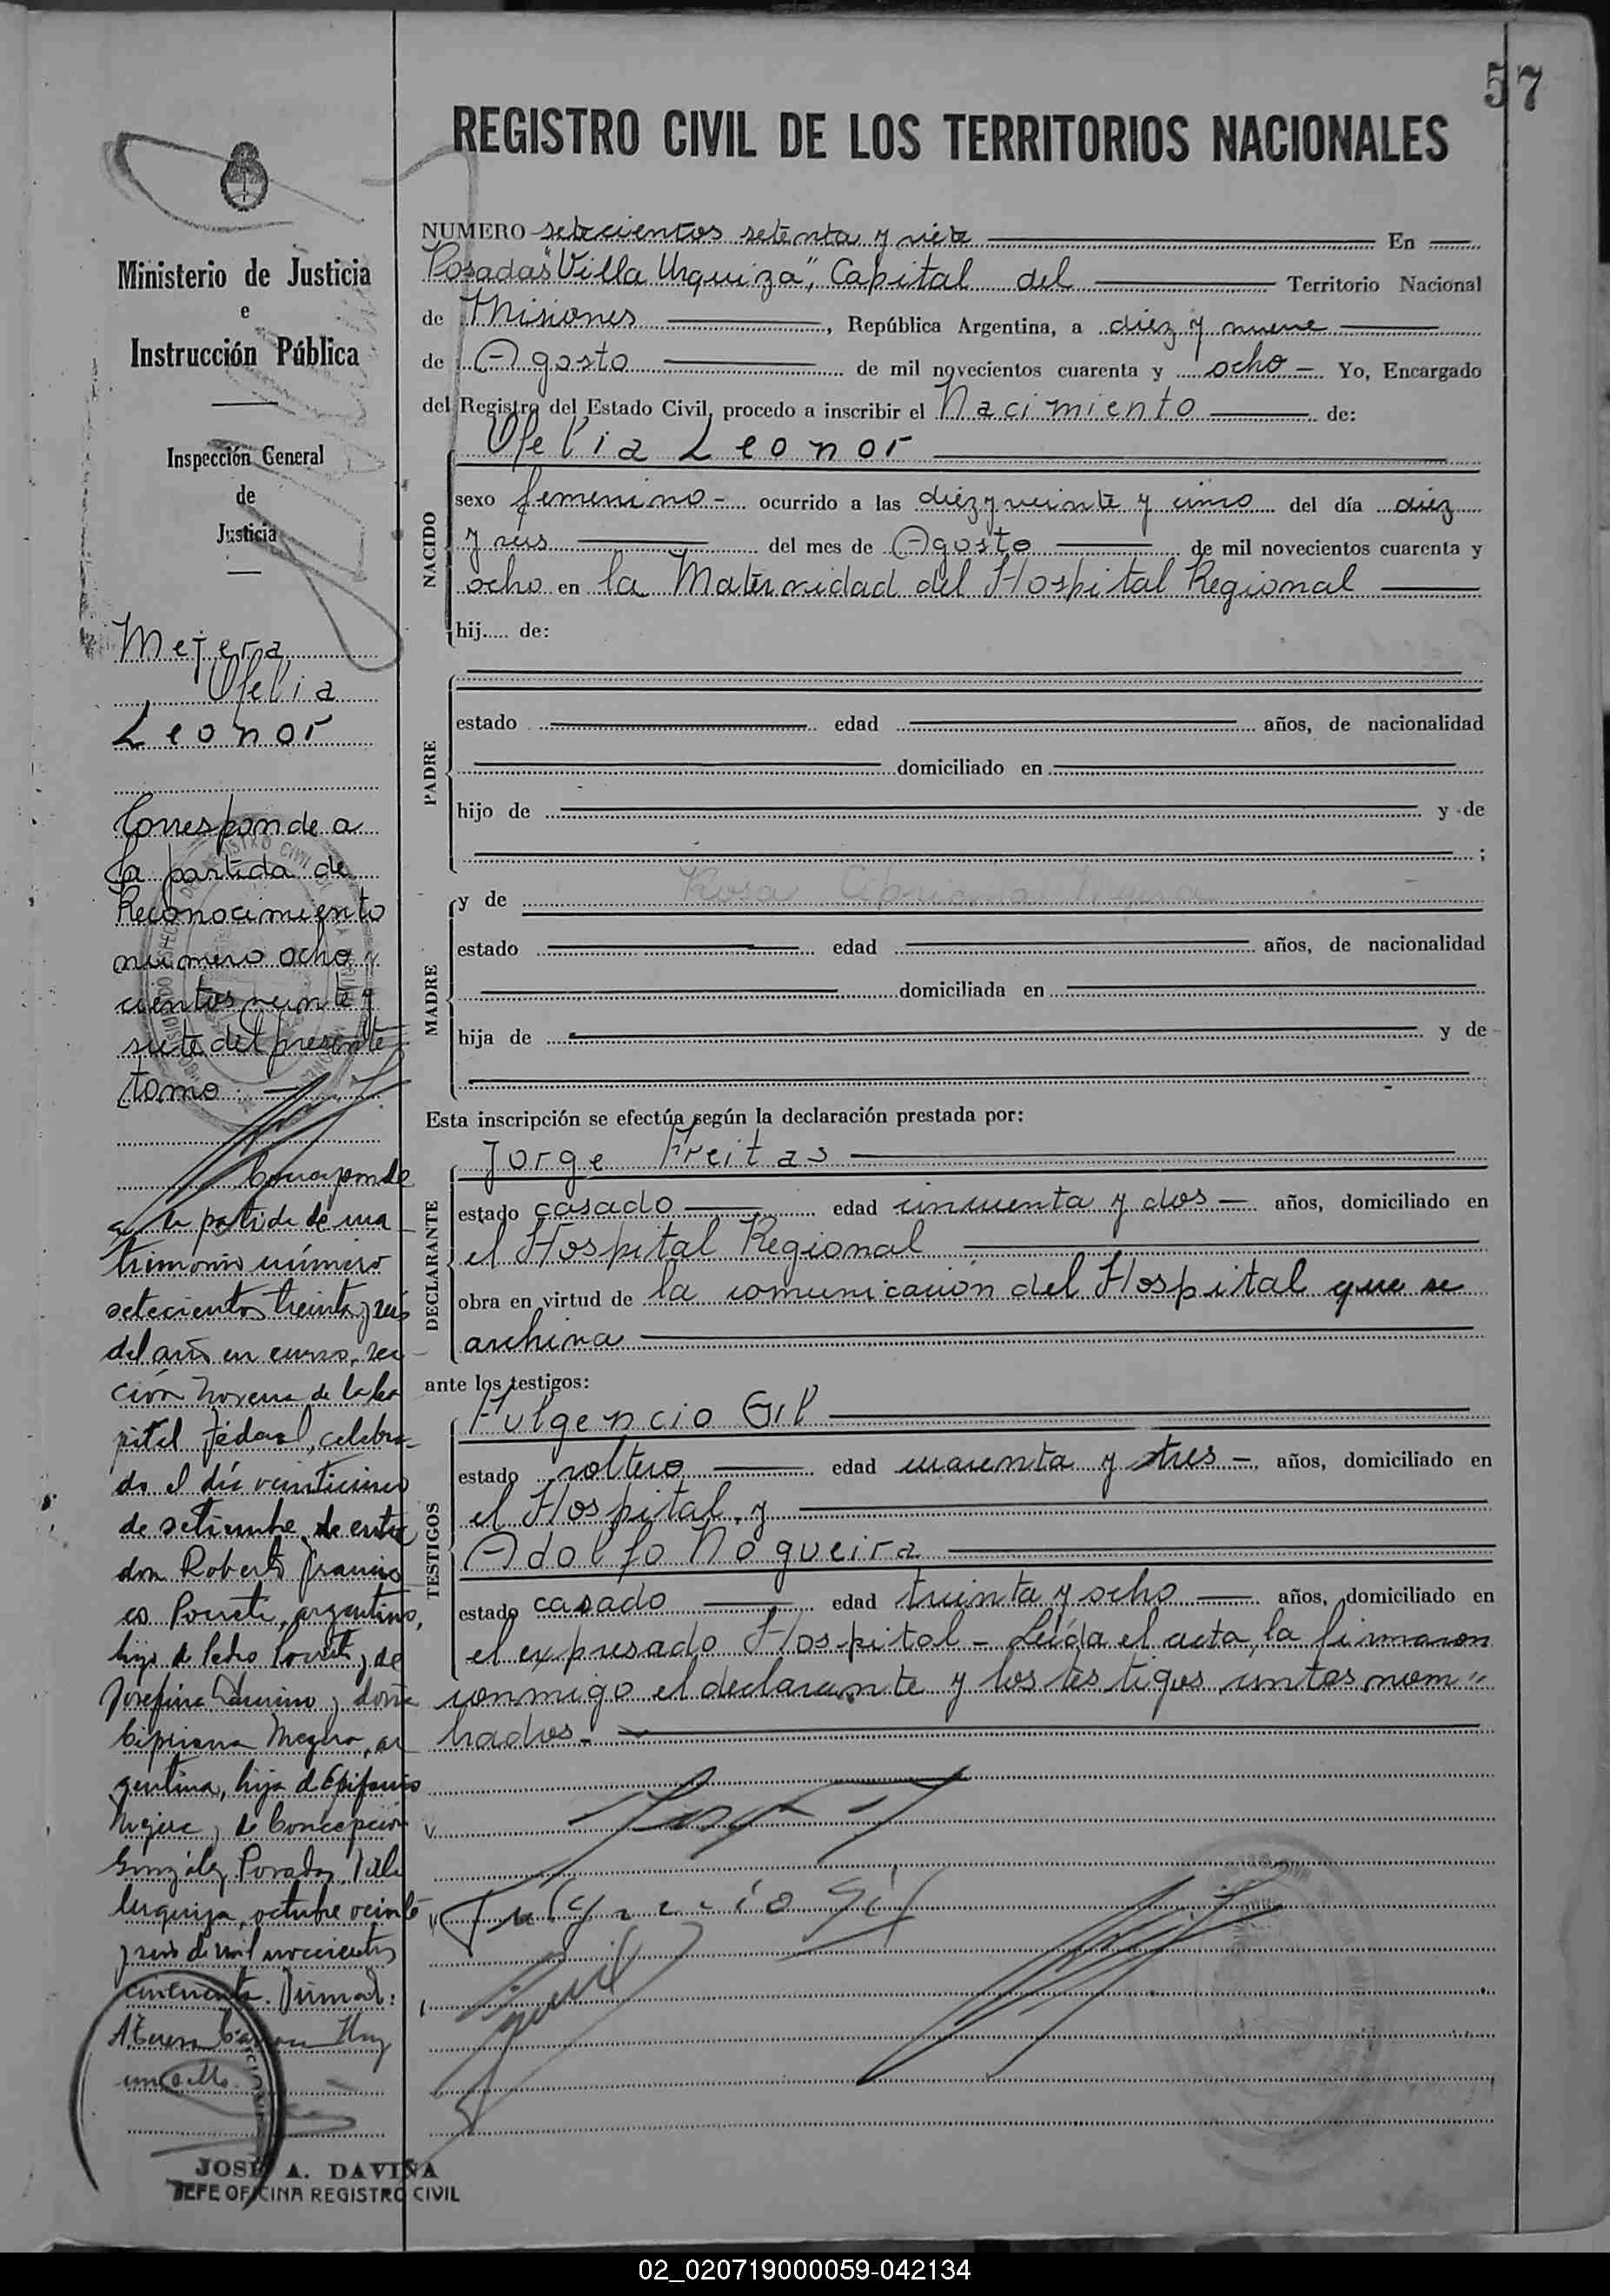 57
REGISTRO CIVIL DE LOS TERRITORIOS NACIONALES
Ministerio de Justicia
e
Instrucción Pública
Inspección General
de
Justicia
Mejera
Ofelia
Leonor
Corresponde a
la partida de
Reconocimiento
número ocho
cientos veinte y
siete del presente
tomo.
Corresponde
a la partida de ma
trimonio número
setecientos treinta y seis
del año en curso, sec
ción novena de la Ca
pital Federal, celebra-
do el día veinticinco
de setiembre, de entre
don Roberto Francis
co argentino,
hijo de Pedro y de
Josefina y doña
Cipriana ar
gentina, hija de Epifanio
y de Concepción
González. Posadas, Villa
Urquiza, octubre veinte
y seis de mil novecientos
cincuenta. Firmado:
JOSE A. DAVIÑA
JEFE OFICINA REGISTRO CIVIL
NUMERO setecientos setenta y siete En
Posadas "Villa Urquiza", Capital del Territorio Nacional
de Misiones, República Argentina, a diez y nueve
de Agosto de mil novecientos cuarenta y ocho - Yo, Encargado
del Registro del Estado Civil, procedo a inscribir el Nacimiento de:
Ofelia Leonor
NACIDO
sexo femenino - ocurrido a las diez y veinte y cinco del día diez
y seis del mes de Agosto de mil novecientos cuarenta y
ocho en la Maternidad del Hospital Regional
hij..... de:
PADRE
estado edad años, de nacionalidad
domiciliado en
hijo de y de
;
MADRE
y de Rosa Cipriana
estado edad años, de nacionalidad
domiciliada en
hija de y de
Esta inscripción se efectúa según la declaración prestada por:
DECLARANTE
Jorge Freitas
estado casado edad cincuenta y dos - años, domiciliado en
el Hospital Regional
obra en virtud de la comunicación del Hospital que se
archiva
ante los testigos:
TESTIGOS
Fulgencio Gil
estado soltero edad cuarenta y tres - años, domiciliado en
el Hospital y
Adolfo Nogueira
estado casado edad treinta y ocho años, domiciliado en
el expresado Hospital - Leída el acta, la firmaron
conmigo el declarante y los testigos untos nom"
brados.-
Fulgencio Gil
02_020719000059-042134